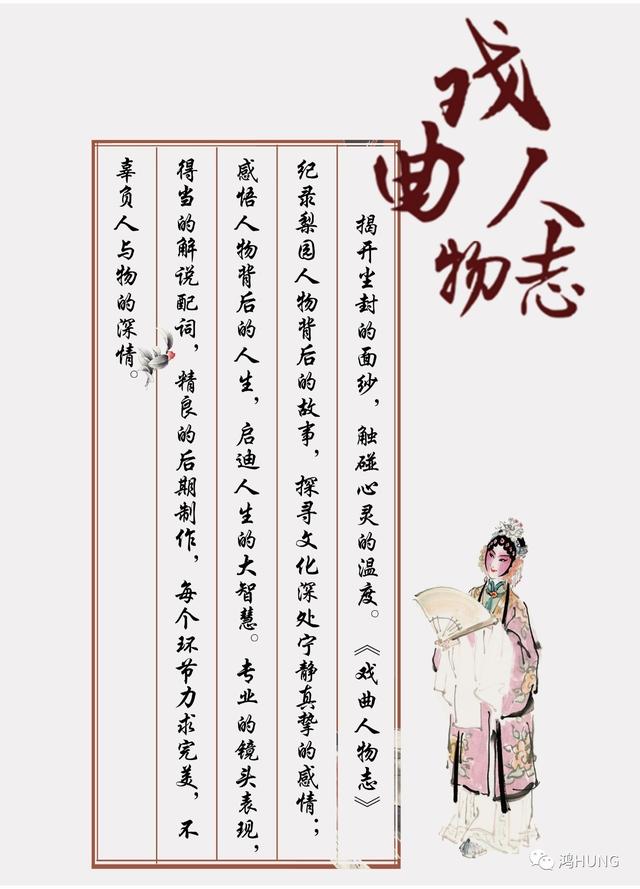 戏曲人物志
揭开尘封的面纱，触碰心灵的温度。《戏曲人物志》
纪录梨园人物背后的故事，探寻文化深处宁静真挚的感情；
感悟人物背后的人生，启迪人生的大智慧。专业的镜头表现，
得当的解说配词，精良的后期制作，每个环节力求完美，不
辜负人与物的深情。
鸿HUNG